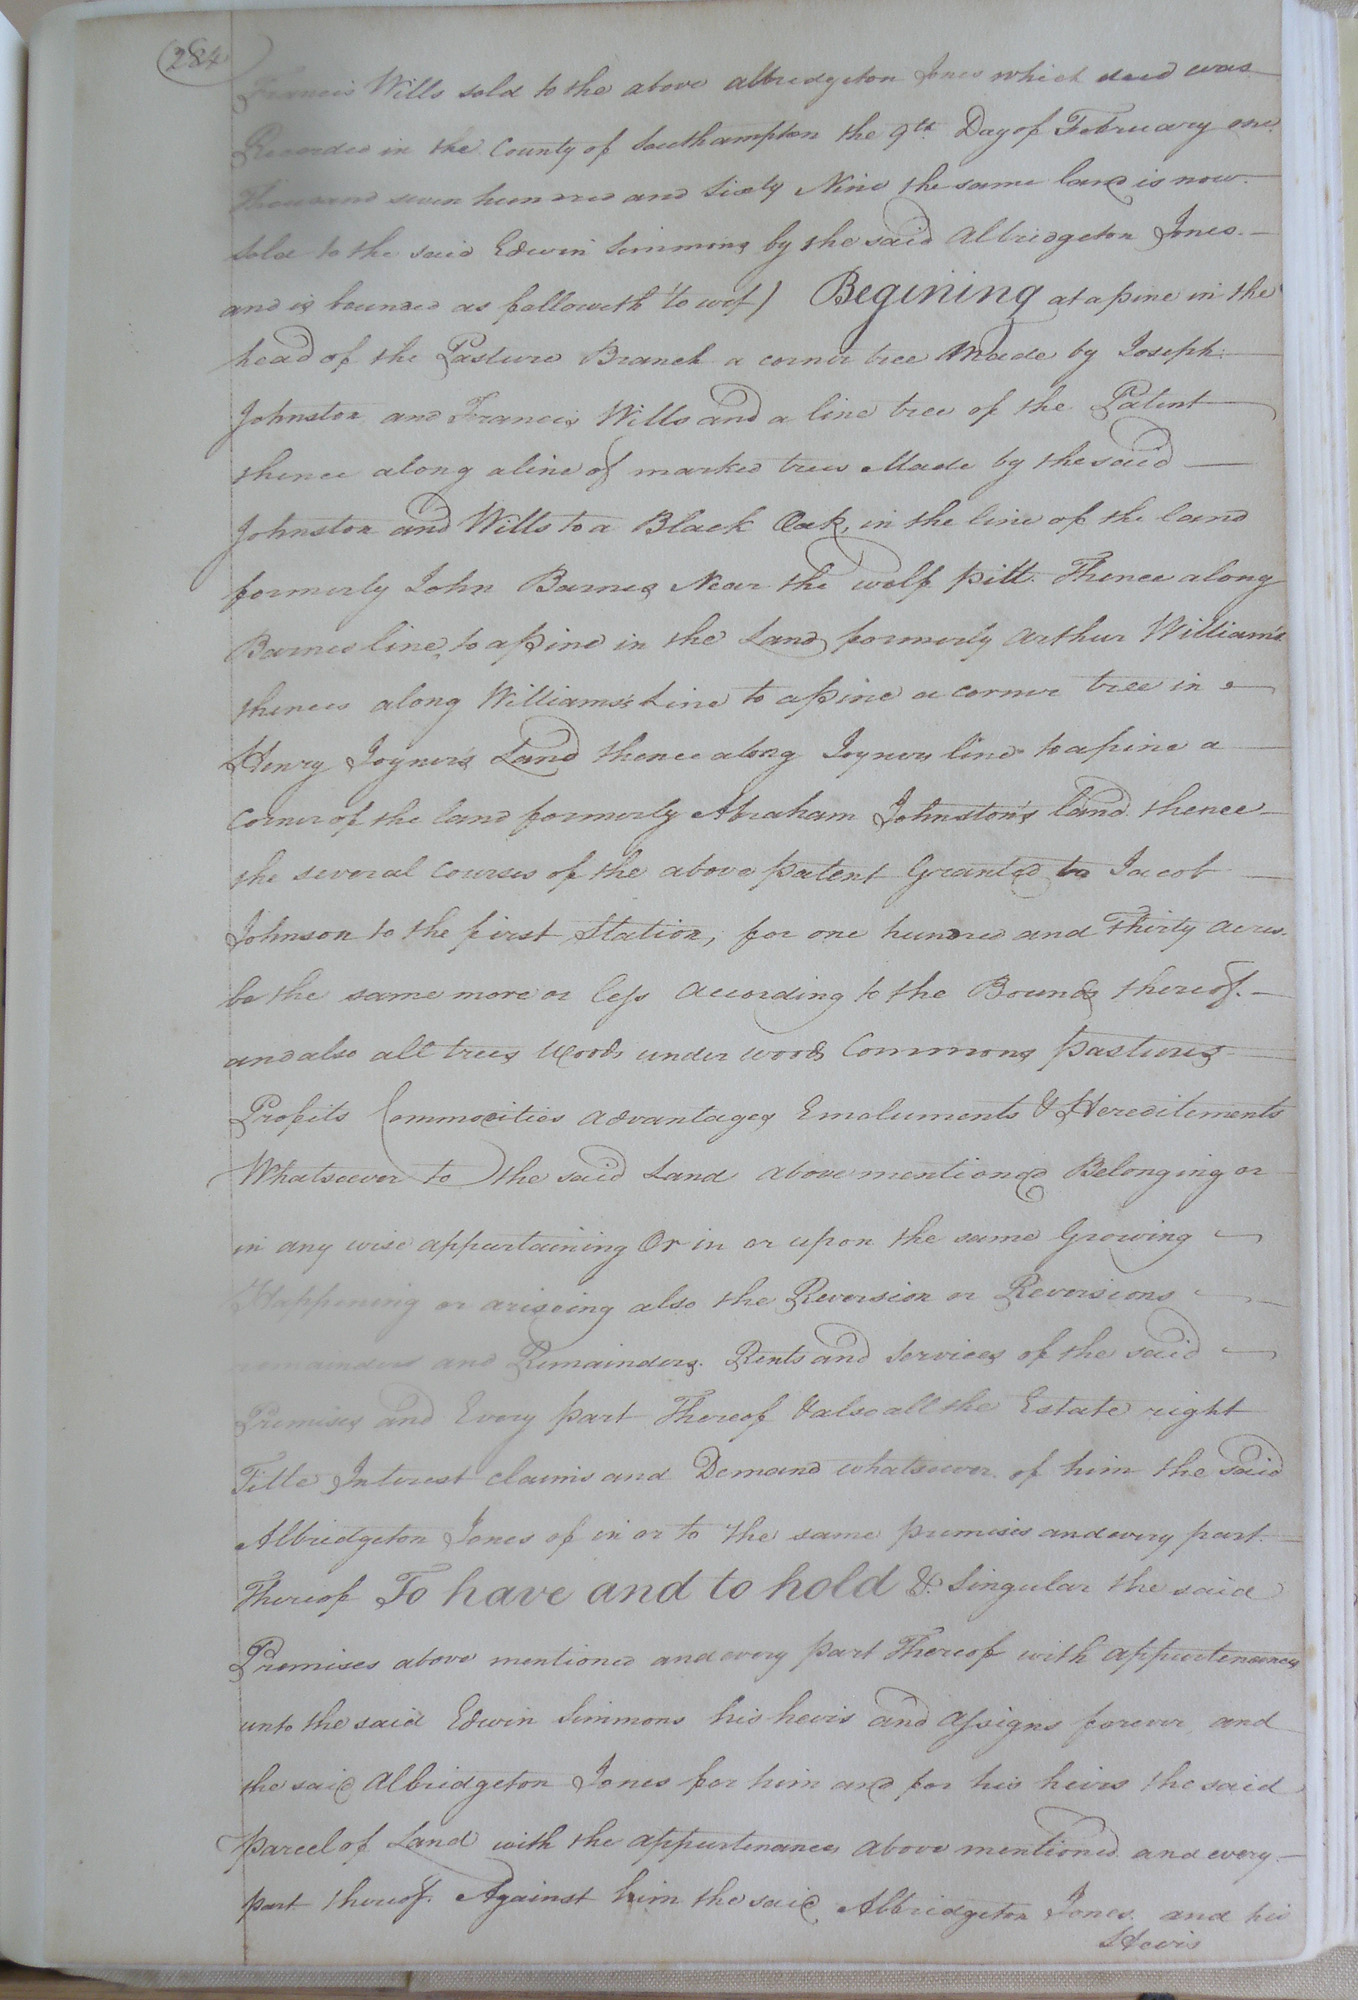 284
Francis Wills sold to the above albridgeton Jones which deed was
Recorded in the County of Southampton the 9th Day of February one
thousand seven hundred and Sixty Nine the same land is now
sold to the said Edwin Simmons by the said Albridgeton Jones.
and is bounded as followeth to wit) Begining at a pine in the
head of the Pasture Branch a corner tree Made by Joseph
Johnston and Francis Wills and a line tree of the Patent
thence along a line of marked trees Made by the said
Johnston and Wills to a Black Oak, in the line of the land
formerly John Barnes Near the wolf pitt. Thence along
Barnes line, to a pine in the Land formerly Arthur William's
thences along Williams's Line to a pine a corner tree in
Henry Joyner's Land thence along Joyners line to a pine a
corner of the land formerly Abraham Johnston's land thence
the several courses of the above patent Granted to Jacob
Johnson to the first Station, for one hundred and Thirty acres.
be the same more or less according to the Bounds thereof.
and also all trees Woods under woods Commons pastures
Profits Commodities advantages Emoluments & Hereditements
Whatsoever to the said Land above mentioned Belonging or
in any wise appurtaining Or in or upon the same Growing
Happening or ariseing also the Reversion or Reversions
remainder and Remainders. Rents and Services of the said
Premises and Every part Thereof & also all the Estate right
Title Interest claims and Demand whatsoever of him the said
Albridgeton Jones of in or to the same premises and every part
Thereof To have and to hold &. Singular the said
Premises above mentioned and every part Thereof with appurtenances
unto the said Edwin Simmons his heirs and assigns forever and
the said Albridgeton Jones for him and for his heirs the said
parcel of Land with the appurtenances above mentioned and every
part thereof. Against him the said Albridgeton Jones. and his
Heirs